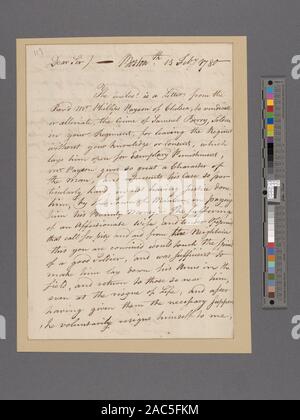 Dear Sir) — Boston 15 Feby 1780
The inclosd is a Letter from the
Revd Mr Phillips Payson of Chelsea, to vindicate
or alleviate, the Crime of Samuel Berry, Soldier
in your Regiment, for leaving the Regimt
without your Knowledge or Consent, which
lays him open for Exemplary Punishment,
mr Payson gives so great a Character of
the Man, & represents his Case so par
ticularly hard
him, by
him his Bounty
of an Affectionate Wife and
that call for pity and aid from his Neighbors
this you are convinced would touch the
of a good Soldier, and was sufficient to
make him lay down his Arms in the
Field, and return to those so near him,
even at the risque of Life, and after
having given them the necessary support
he voluntarily resigns himself to me,
alamy
2AC5FKM